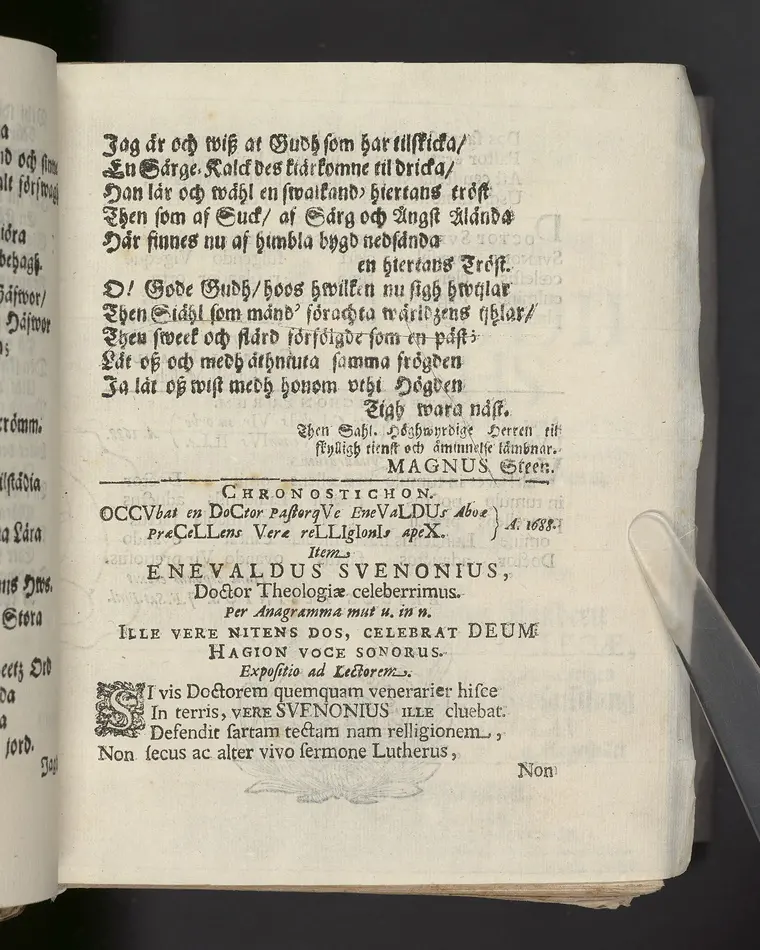 a
nd och sinne
alt förswag
töra
behagh.
Häfwor/
Häfwor
strömm.
ilstädia
na Lära
Hws.
Stora
Ord
da
a
jord.
Jag
Jag är och wiß at Gudh som har tilskicka/
En Särge-Kalck des kiärkomne til dricka/
Han lär och wähl en swalkand' hiertans tröst
Then som af Suck/ af Särg och Ångst Älända
Här finnes nu af himbla bygd nedsända
en hiertans Tröst.
O! Gode Gudh/ hoos hwilken nu sigh hwijlar
Then Siähl som mänd' förachta wärldzens ijhlar/
Then sweek och flärd förfölgde som en päst;
Lät oß och medh åthniuta samma frögden
Ja lät oß wist medh honom vthi Högden
Tigh wara näst.
Then Sahl. Höghwyrdige Herren til
skylligh tienst och åminnelse lämbnar.
MAGNUS Steen.
CHRONOSTICHON.
OCCVbat en DoCtor PastorqVe EneVaLDUs Aboæ
PræCeLLens Veræ reLLIgIonIs apeX. } A. 1688.
Item
ENEVALDUS SVENONIUS,
Doctor Theologiæ celeberrimus.
Per Anagramma mut u. in n.
ILLE VERE NITENS DOS, CELEBRAT DEUM
HAGION VOCE SONORUS.
Expositio ad Lectorem.
SI vis Doctorem quemquam venerarier hisce
In terris, VERE SVENONIUS ILLE cluebat.
Defendit sartam tectam nam relligionem,
Non secus ac alter vivo sermone Lutherus,
Non